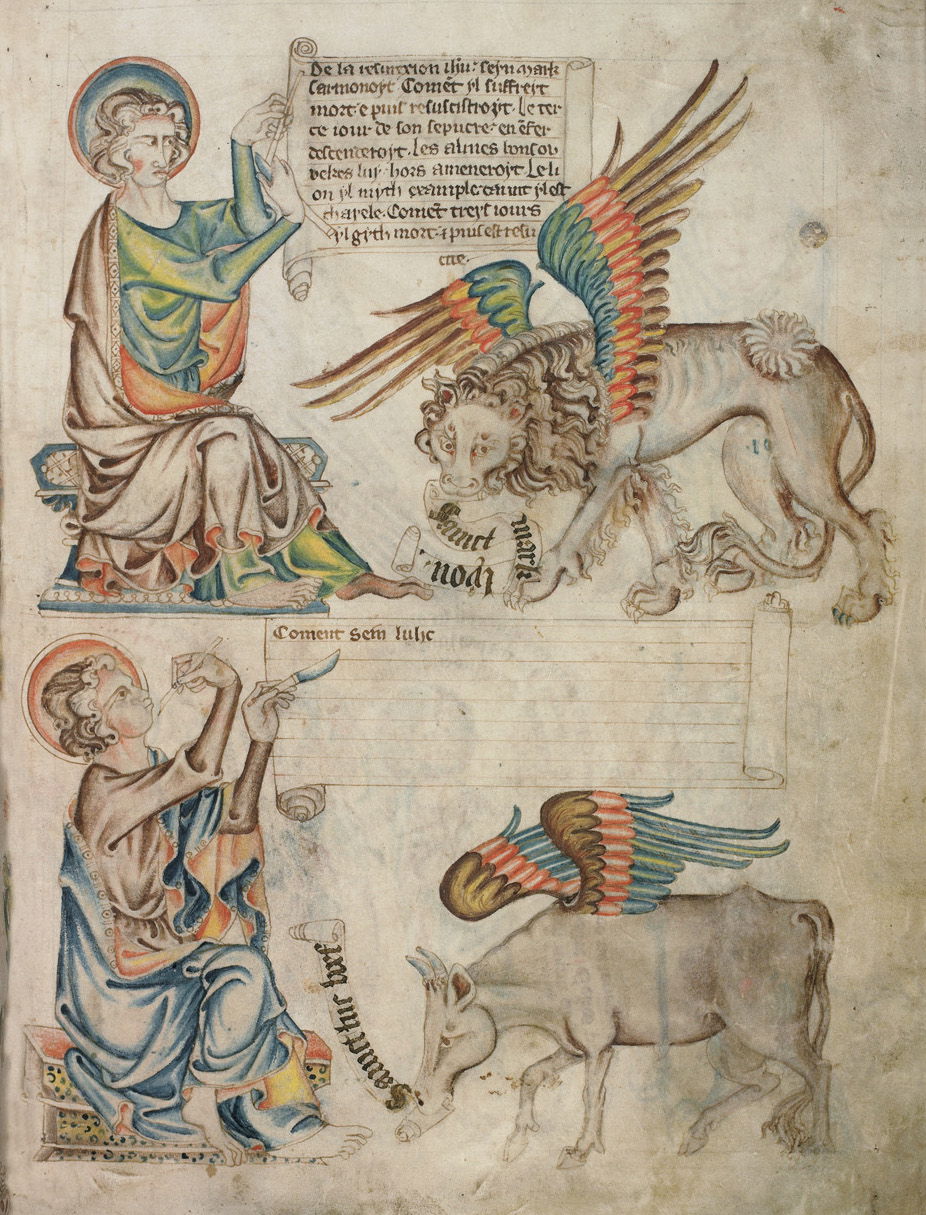 De la resurrexion ihu: seyn Mark
sarmonoyt Coment yl suffreyt
mort e puis resuscistroyt. Le ter
ce iour de son sepucre: en enfer
descenderoyt. Les almes
hors ameneroyt. Le li
on yl myth example
chayele. Coment treys iours
yl gyth mort: & puis est resu
cite.
Sanct mark
Coment Sein Luke
Sanct